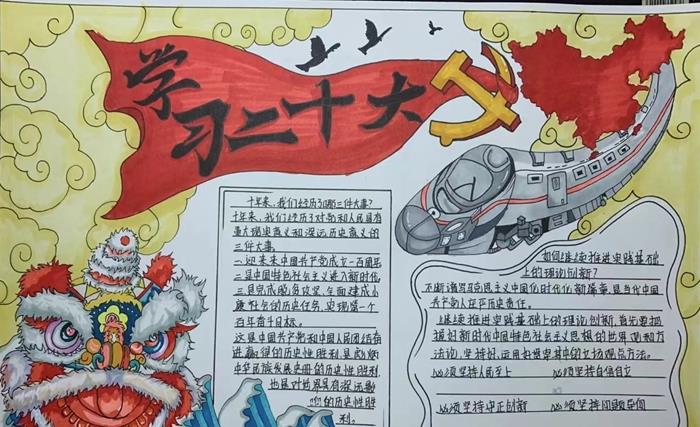 学习二十大
十年来,我们经历了哪三件大事?
十年来,我们经历了对党和人民具有
重大现实意义和深远历史意义的
三件大事。
一迎来中国共产党成立一百周年
二是中国特色社会主义进入新时代
三是完成脱贫攻坚、全面建成小
康社会的历史任务,实现第一个
百年奋斗目标。
这是中国共产党和中国人民团结奋
进赢得的历史性胜利,是彪炳
中华民族发展史册的历史性胜利,
也是对世界具有深远影
响的历史性胜
利。
如何继续推进实践基础
上的理论创新?
不断谱写马克思主义中国化时代化新篇章,是当代中国
共产党人庄严历史责任。
继续推进实践基础上的理论创新,首先要把
握好新时代中国特色社会主义思想的世界观和方
法论,坚持好、运用好贯穿其中的立场观点方法。
必须坚持人民至上 必须坚持自信自立
必须坚持守正创新 必须坚持问题导向